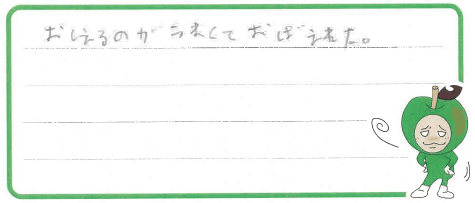 おしえるのがうまくておぼえれた。